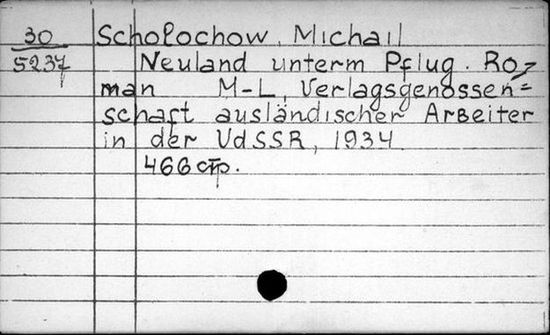 30 Scholochow, Michail
5237 Neuland unterm Pflug. Ro=
man M-L, Verlagsgenossen=
schaft ausländischer Arbeiter
in der VdSSR, 1934
466 стр.